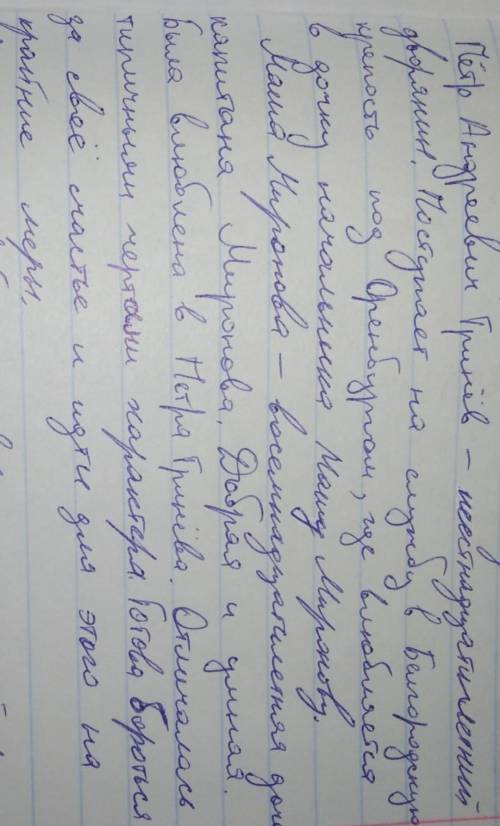 Пётр Андреевич Гринёв – шестнадцатилетний
дворянин. Поступает на службу в Белогорскую
крепость под Оренбургом, где влюбляется
в дочку начальника Машу Миронову.
Маша Миронова – восемнадцатилетняя доч
капитана Миронова. Добрая и умная.
Была влюблена в Петра Гринёва. Отличалась
типичными чертами характера. Готова бороться
за своё счастье и идти для этого на
крайние меры.